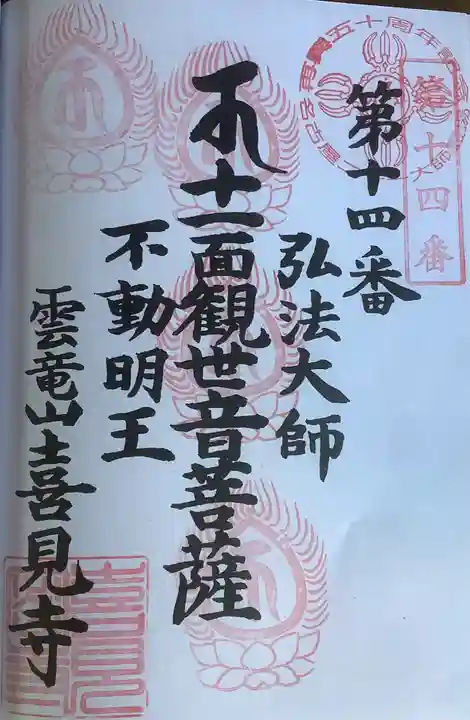 第十四番
弘法大師
十一面観世音菩薩
不動明王
雲竜山喜見寺
第十四番
大師
再興五十周年